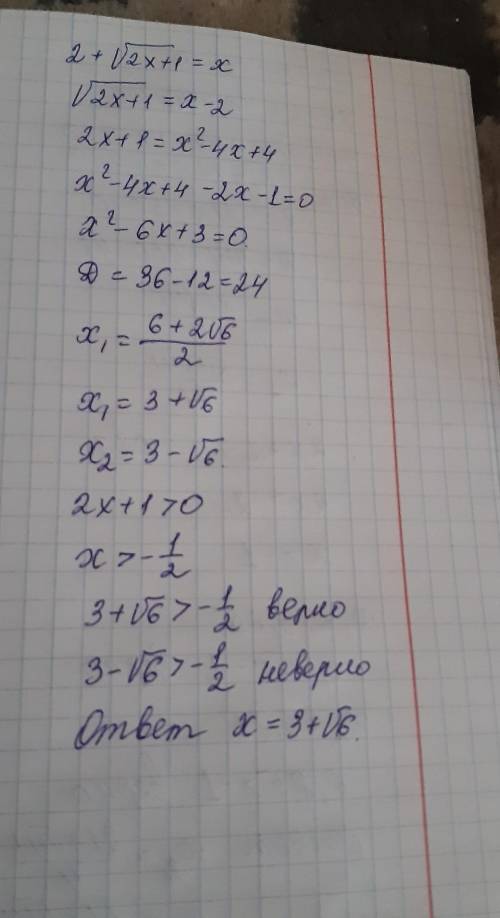 2 + √2x+1 = x
√2x+1 = x-2
2x+1 = x²-4x+4
x²-4x+4-2x-1=0
x²-6x+3=0.
D = 36-12=24
x₁ = (6+2√6)/2
x₁ = 3+√6
x₂ = 3-√6.
2x+1>0
x > -1/2
3+√6 > -1/2 верно
3-√6 > -1/2 неверно
Ответ x = 3+√6.